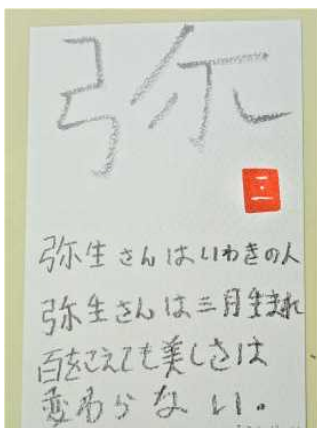 弥
三
弥生さんはいわきの人
弥生さんは三月生まれ
百をこえても美しさは
変わらない。